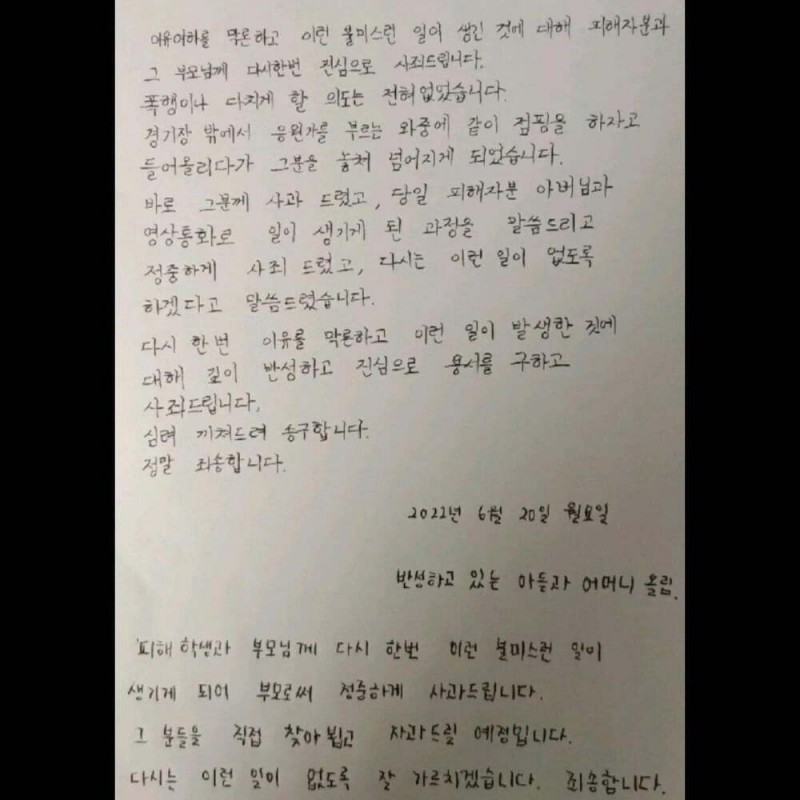 이유여하를 막론하고 이런 불미스런 일이 생긴 것에 대해 피해자분과
그 부모님께 다시한번 진심으로 사죄드립니다.
폭행이나 다치게 할 의도는 전혀 없었습니다.
경기장 밖에서 응원가를 부르는 와중에 같이 점핑을 하자고
들어올리다가 그분을 놓쳐 넘어지게 되었습니다.
바로 그분께 사과 드렸고, 당일 피해자분 아버님과
영상통화로 일이 생기게 된 과정을 말씀드리고
정중하게 사죄 드렸고, 다시는 이런 일이 없도록
하겠다고 말씀드렸습니다.
다시 한번 이유를 막론하고 이런 일이 발생한 것에
대해 깊이 반성하고 진심으로 용서를 구하고
사죄드립니다.
심려 끼쳐드려 송구합니다.
정말 죄송합니다.
2022년 6월 20일 월요일
반성하고 있는 아들과 어머니 올림.
피해 학생과 부모님께 다시 한번 이런 불미스런 일이
생기게 되어 부모로써 정중하게 사과드립니다.
그 분들을 직접 찾아 뵙고 사과드릴 예정입니다.
다시는 이런 일이 없도록 잘 가르치겠습니다. 죄송합니다.